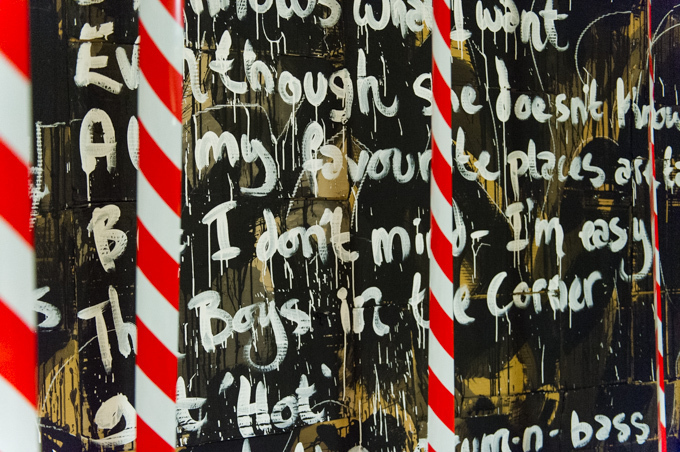 knows what I want
Even though she doesn't throw
All my favourite places are
B I don't mind - I'm easy
The Boys in the Corner
get 'Hot'
drum-n-bass